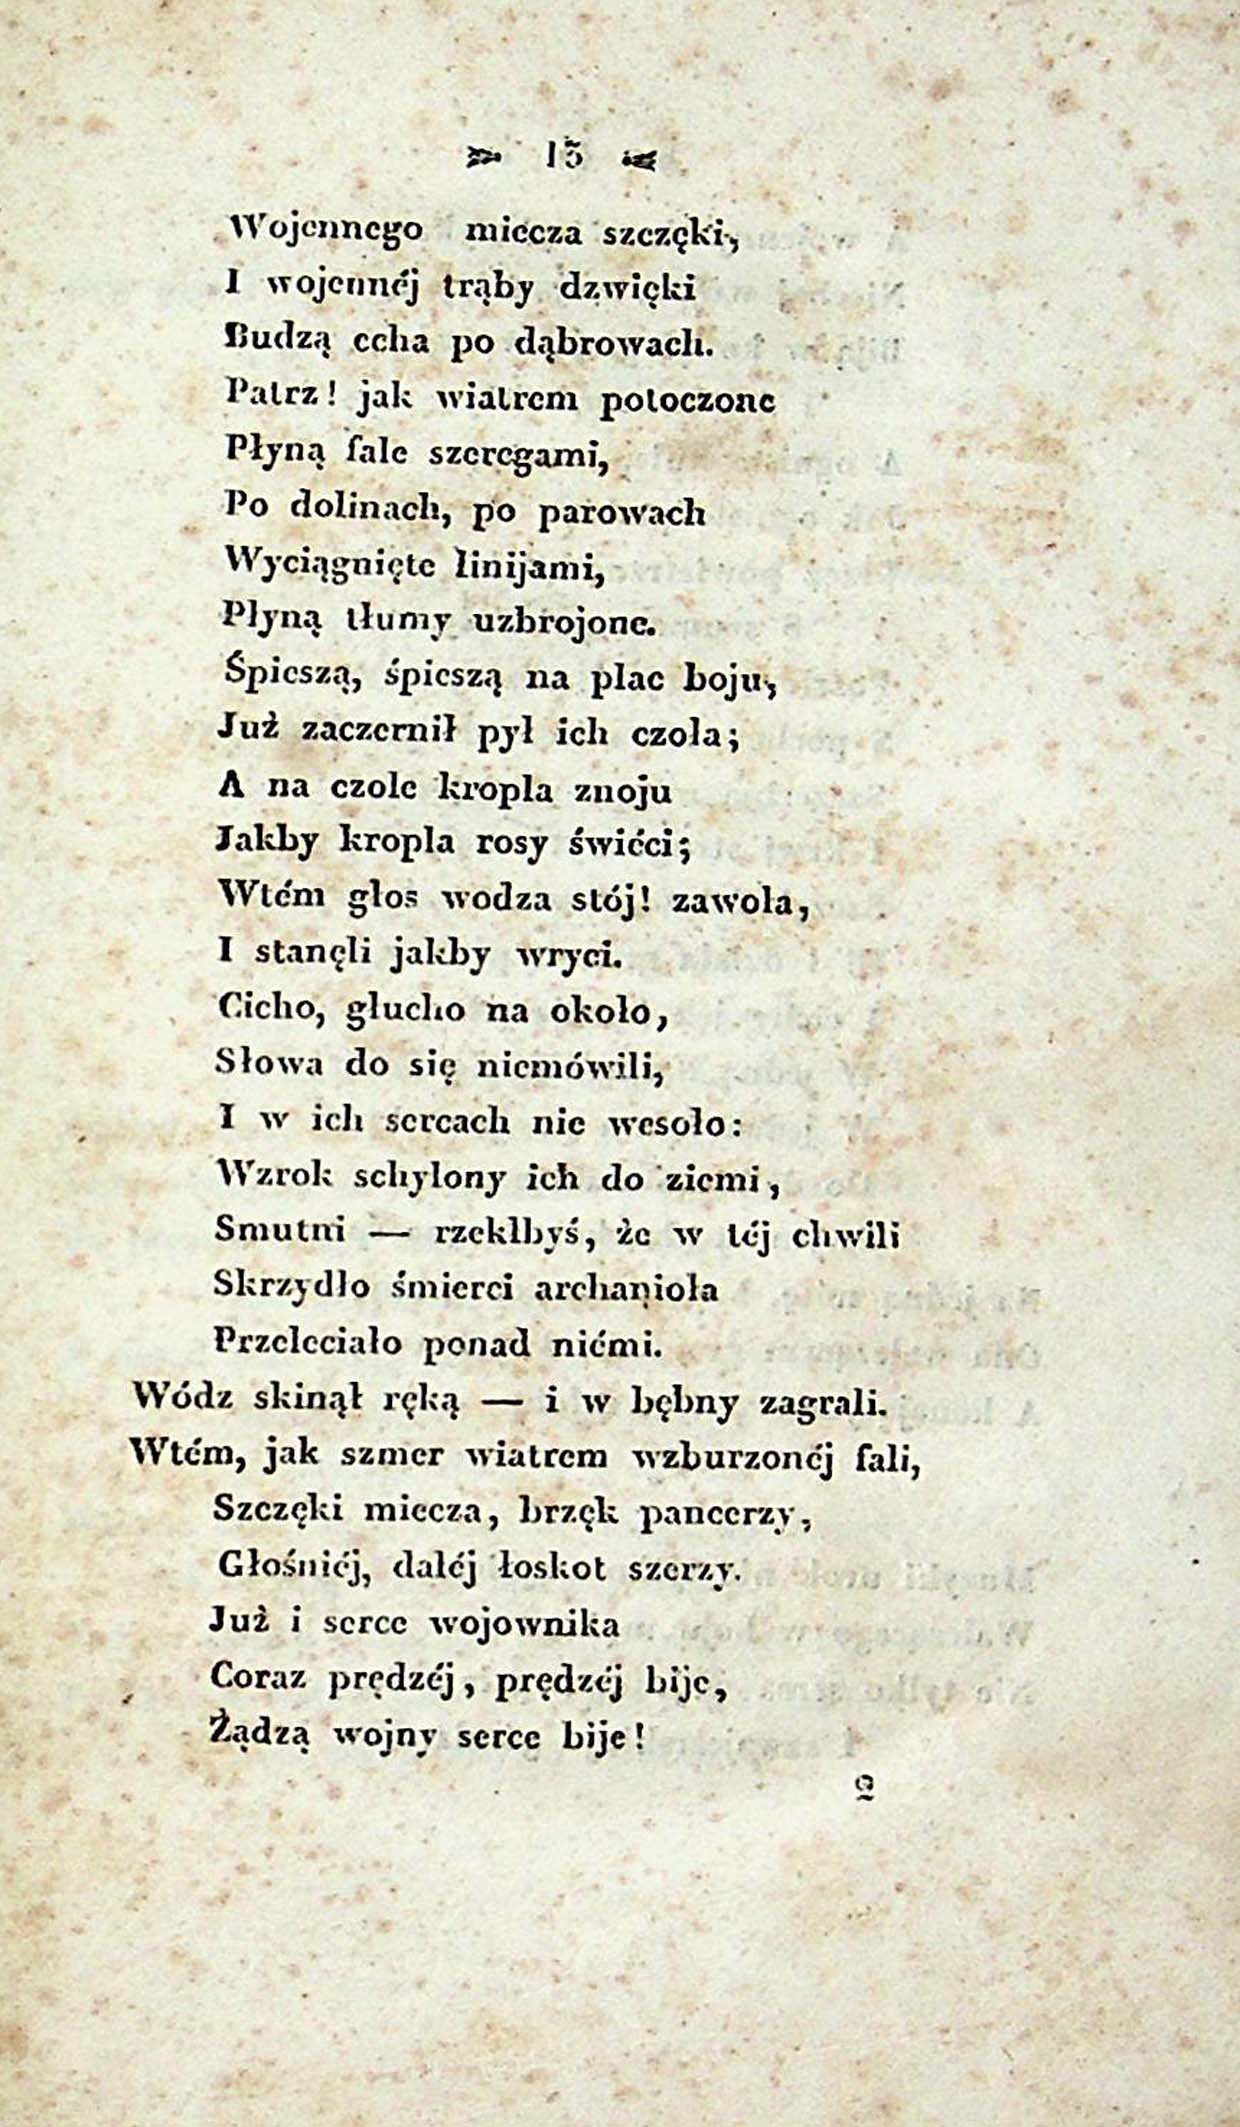 13
Wojennego miecza szczęki,
I wojennéj trąby dzwięki
Budzą echa po dąbrowach.
Patrz! jak wiatrem potoczone
Płyną fale szeregami,
Po dolinach, po parowach
Wyciągnięte linijami,
Płyną tłumy uzbrojone.
Śpieszą, śpieszą na plac boju,
Już zaczernił pył ich czoła;
A na czole kropla znoju
Jakby kropla rosy świéci;
Wtém głos wodza stój! zawoła,
I stanęli jakby wryci.
Cicho, głucho na około,
Słowa do się niemówili,
I w ich sercach nie wesoło:
Wzrok schylony ich do ziemi,
Smutni — rzekłbyś, że w téj chwili
Skrzydło śmierci archanioła
Przeleciało ponad niémi.
Wódz skinął ręką — i w bębny zagrali.
Wtém, jak szmer wiatrem wzburzonéj fali,
Szczęki miecza, brzęk pancerzy,
Głośniéj, daléj łoskot szerzy.
Już i serce wojownika
Coraz prędzéj, prędzéj bije,
Żądzą wojny serce bije!
2